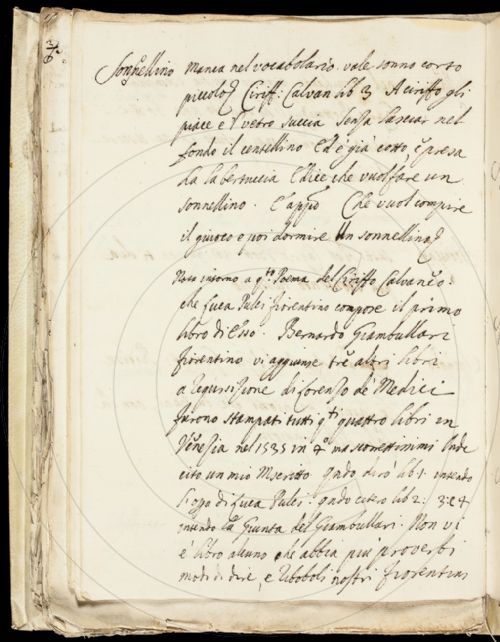 Sonnellino manca nel vocabolario. vale sonno corto
piccolo Ciriff: Calvan lib 3 A ciriffo gli
piace e 'l vetro succia senza lasciar nel
fondo il centellino Ed è già cotto e presa
ha la bertuccia E dice che vuol fare un
sonnellino. E app.º Che vuol compire
il giuoco e poi dormire un sonnellino
Noto intorno a q.to Poema del Ciriffo Calvaneo
che Luca Pulci fiorentino compose il primo
libro di Esso: Bernardo Giambullari
fiorentino vi aggiunse tre altri libri
a requisizione di Lorenzo de' Medici
furono stampati tutti q.ti quattro libri in
Venezia nel 1535 in 4 ma scorrettissimi
cito un mio Mscritto qndo dirò lib. 1. intendo
di Luca Pulci: qndo citero lib 2: 3: e 4
intendo la Giunta del Giambullari. Non vi
è libro alcuno che abbia più proverbi
modi di dire, e riboboli nostri fiorentini